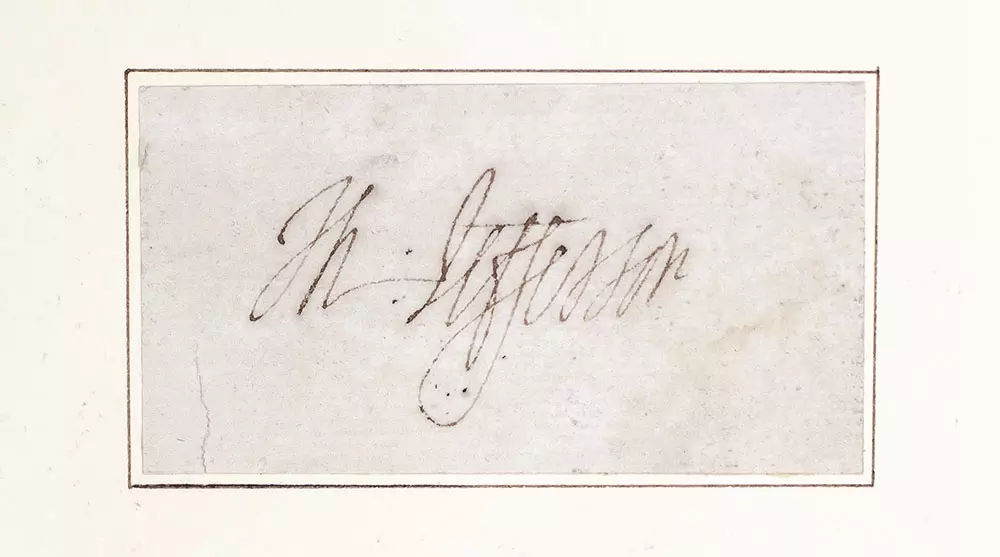 Th : Jefferson